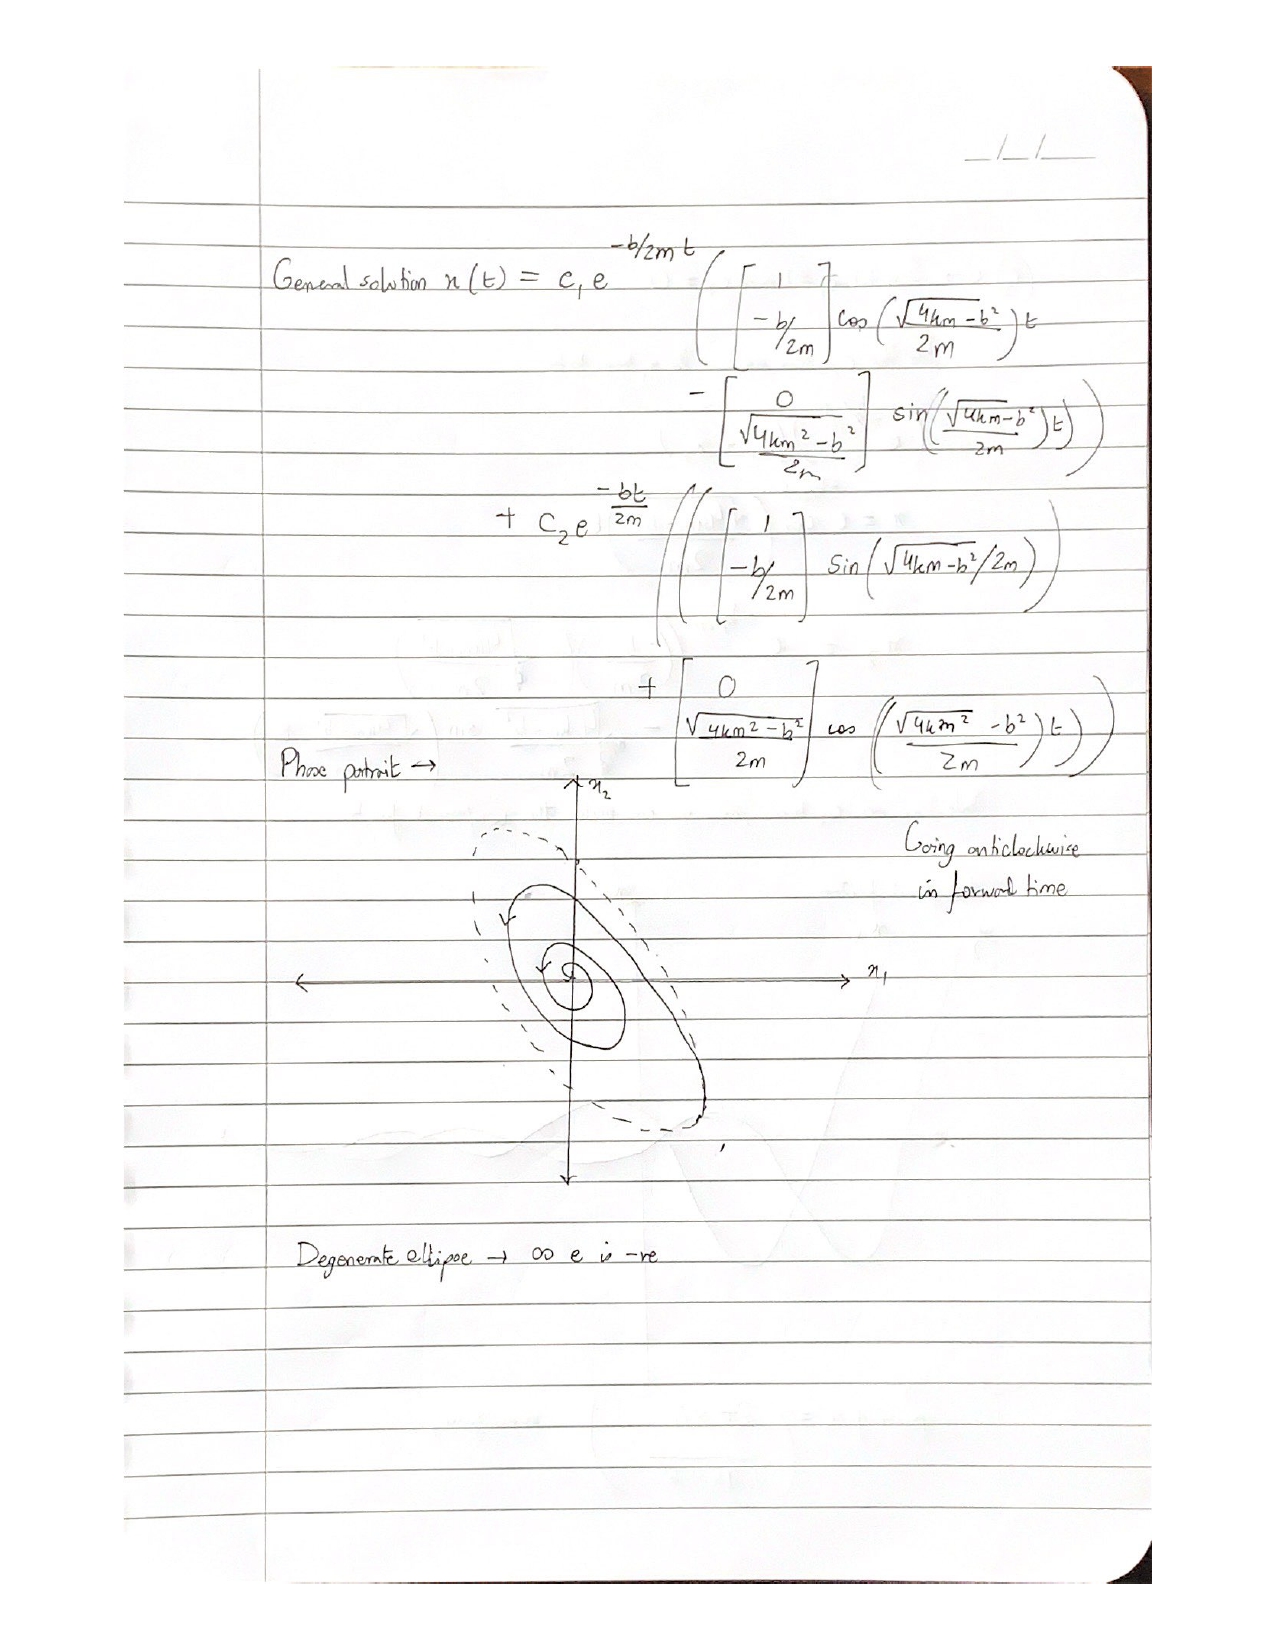 _/_/__
General solution x(t) = c₁ e^{-b/2m t} ( [ 1 ; -b/2m ] cos ( √(4km - b²) / 2m ) t
- [ 0 ; √(4km² - b²) / 2m ] sin ( ( √4km - b² / 2m ) t ) )
+ c₂ e^{-bt/2m} ( ( ( [ 1 ; -b/2m ] sin ( √(4km - b²) /2m ) )
+ [ 0 ; √(4km² - b²) / 2m ] cos ( ( √4km² - b² / 2m ) t ) )
Phase portrait →
x₂
Going anticlockwise
in forwad time
x₁
Degenerate ellipse → ∞ e is -ve